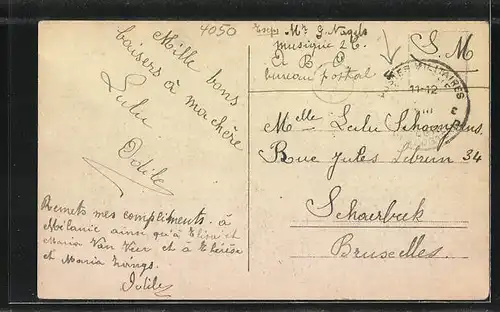 4050
Mille bons
baisers à ma chère
Lulu
Odile
Remets mes compliments à
Mélanie ainsi qu'à Elise et
Maria Van Vier et à Thérèse
et Maria
Odile
Exp. Mr J. Nagels
musique 2 C.
A B O
bureau postal
S. M
POSTES MILITAIRES
11-12
Melle Lulu Schoenjans
Rue Jules Lebrun 34
Schaerbeek
Bruxelles.